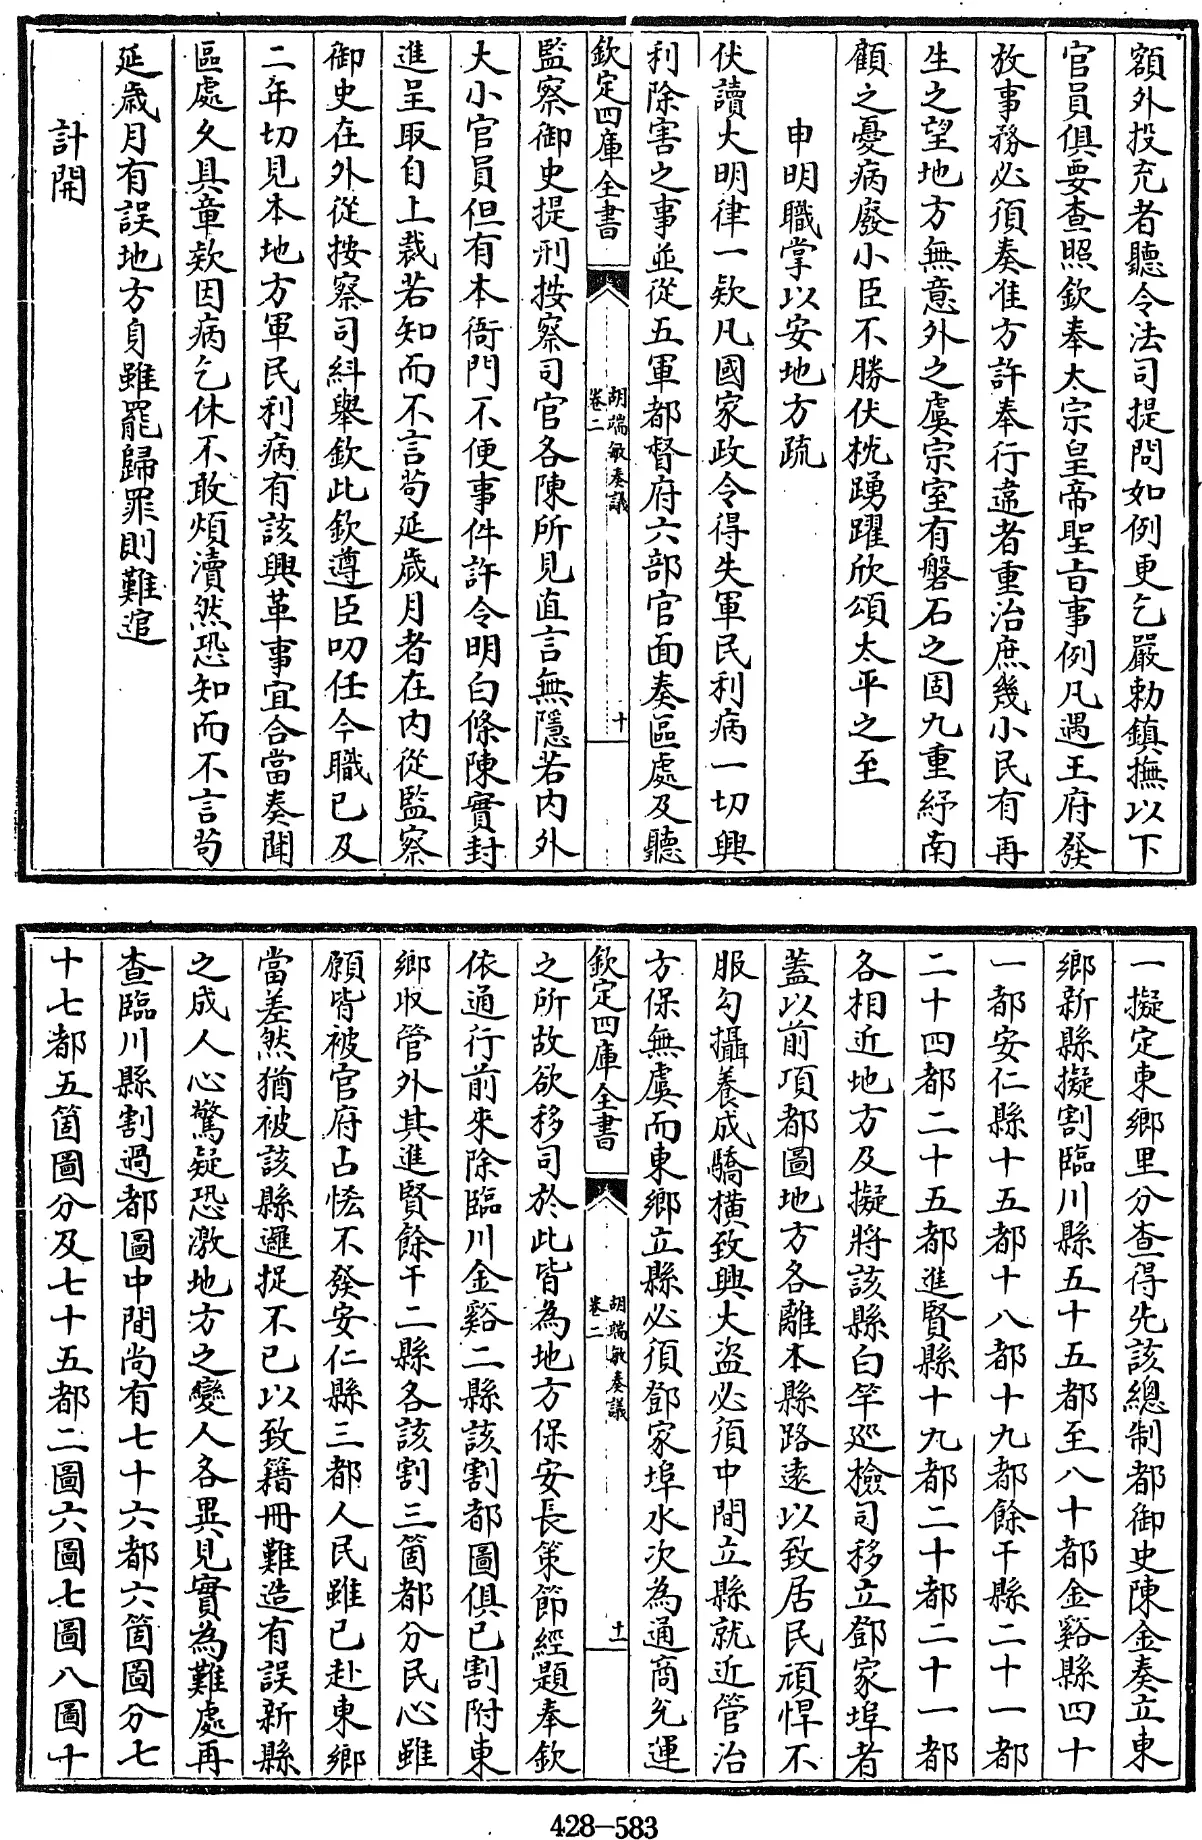 額外投充者聽令法司提問如例更乞嚴勅鎮撫以下
官員俱要查照欽奉太宗皇帝聖旨事例凡遇王府發
放事務必須奏准方許奉行違者重治庶幾小民有再
生之望地方無意外之虞宗室有磐石之固九重紓南
顧之憂病廢小臣不勝伏枕踴躍欣頌太平之至
申明職掌以安地方疏
伏讀大明律一欵凡國家政令得失軍民利病一切興
利除害之事並從五軍都督府六部官面奏區處及聽
欽定四庫全書
胡端敏奏議
卷二
十
監察御史提刑按察司官各陳所見直言無隱若內外
大小官員但有本衙門不便事件許令明白條陳實封
進呈取自上裁若知而不言苟延歲月者在內從監察
御史在外從按察司糾舉欽此欽遵臣叨任今職已及
二年切見本地方軍民利病有該興革事宜合當奏聞
區處久具章欵因病乞休不敢煩瀆然恐知而不言苟
延歲月有誤地方身雖罷歸罪則難逭
計開
一擬定東鄉里分查得先該總制都御史陳金奏立東
鄉新縣擬割臨川縣五十五都至八十都金谿縣四十
一都安仁縣十五都十八都十九都餘干縣二十一都
二十四都二十五都進賢縣十九都二十都二十一都
各相近地方及擬將該縣白竿廵檢司移立鄧家埠者
蓋以前項都圖地方各離本縣路遠以致居民頑悍不
服勾攝養成驕橫致興大盜必須中間立縣就近管治
方保無虞而東鄉立縣必須鄧家埠水次為通商兌運
欽定四庫全書
胡端敏奏議
卷二
十一
之所故欲移司於此皆為地方保安長策節經題奉欽
依通行前來除臨川金谿二縣該割都圖俱已割附東
鄉收管外其進賢餘干二縣各該割三箇都分民心雖
願皆被官府占恡不發安仁縣三都人民雖已赴東鄉
當差然猶被該縣邏捉不已以致籍冊難造有誤新縣
之成人心驚疑恐激地方之變人各異見實為難處再
查臨川縣割過都圖中間尚有七十六都六箇圖分七
十七都五箇圖分及七十五都二圖六圖七圖八圖十
428-583